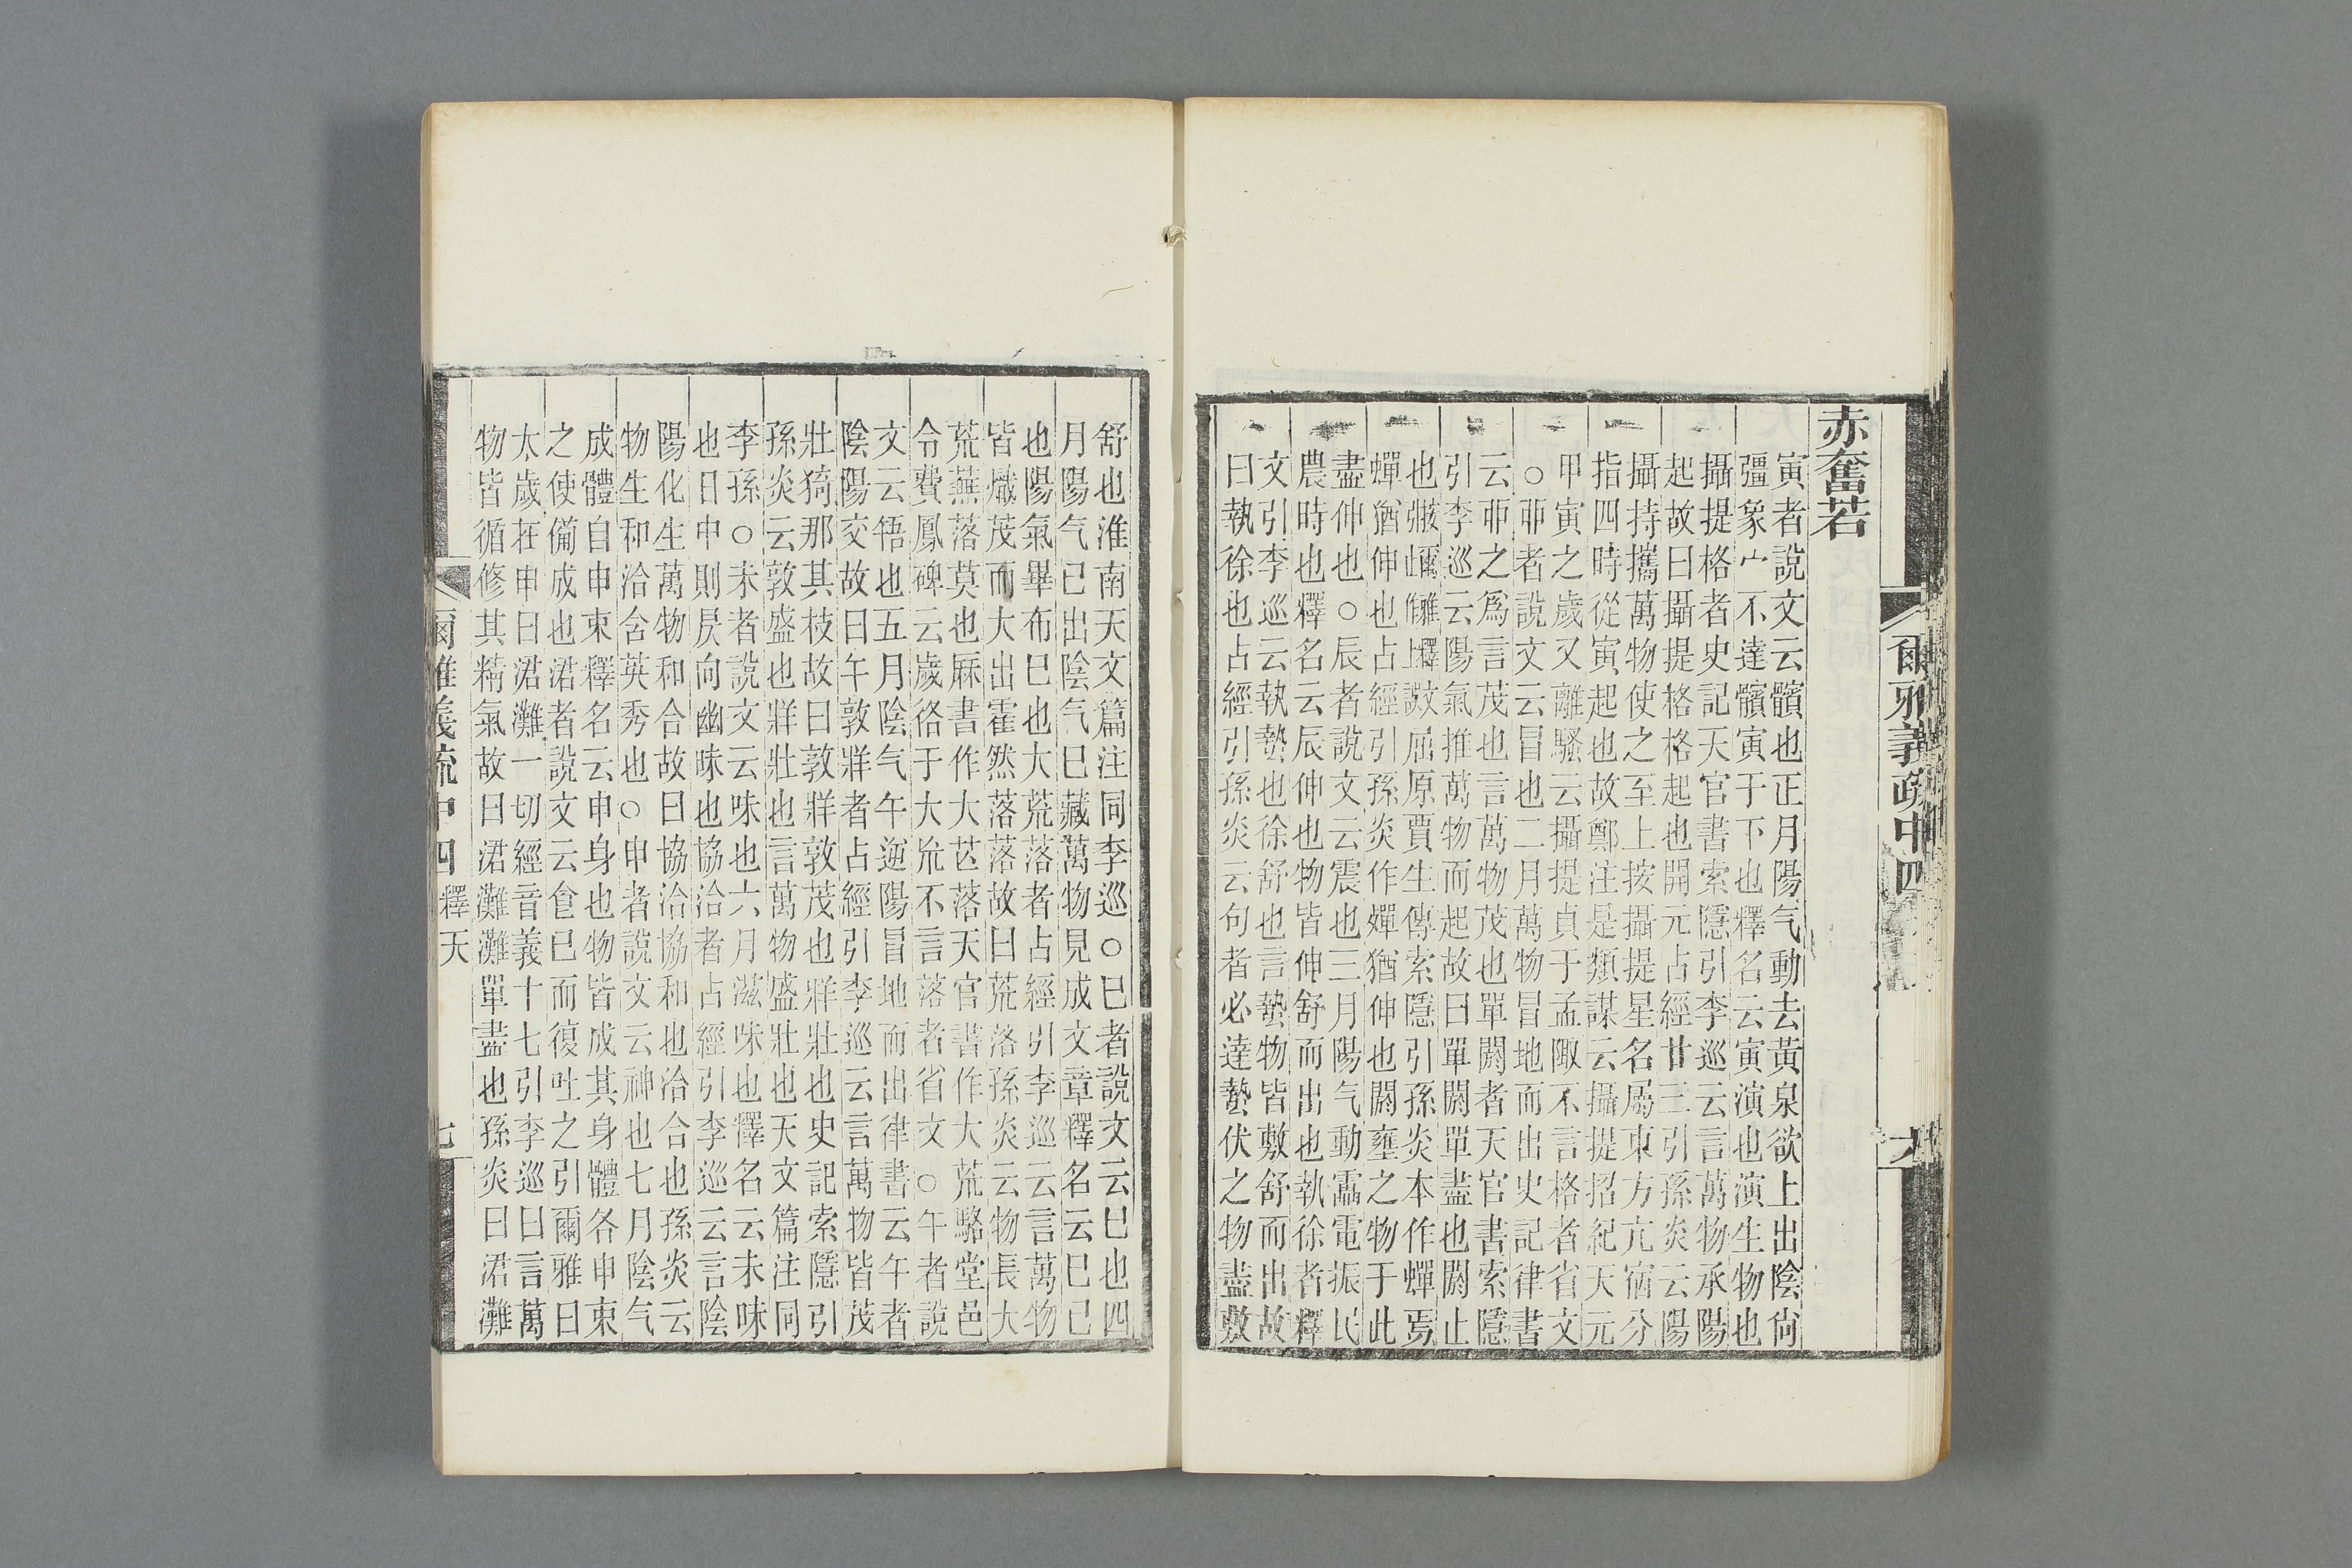 爾雅義疏中四
赤奮若
寅者說文云髕也正月陽气動去黃泉欲上出陰尙
彊象宀不達髕寅于下也釋名云寅演也演生物也
攝提格者史記天官書索隱引李巡云言萬物承陽
起故曰攝提格格起也開元占經廿三引孫炎云陽
攝持攜萬物使之至上按攝提星名屬東方亢宿分
指四時從寅起也故鄭注是類謀云攝提招紀天元
甲寅之歲又離騷云攝提貞于孟陬不言格者省文
○丣者說文云冒也二月萬物冒地而出史記律書
云丣之爲言茂也言萬物茂也單閼者天官書索隱
引李巡云陽氣推萬物而起故曰單閼單盡也閼止
也屈原賈生傳索隱引孫炎本作蟬焉
蟬猶伸也占經引孫炎作嬋猶伸也閼壅之物于此
盡仲也○辰者說文云震也三月陽气動靁電振民
農時也釋名云辰伸也物皆伸舒而出也執徐者釋
文引李巡云執蟄也徐舒也言蟄物皆敷舒而出故
曰執徐也占經引孫炎云句者必達蟄伏之物盡敷
舒也淮南天文篇注同李巡○巳者說文云巳也四
月陽气巳出陰气巳藏萬物見成文章釋名云巳已
也陽氣畢布巳也大荒落者占經引李巡云言萬物
皆熾茂而大出霍然落落故曰荒落孫炎云物長大
荒蕪落莫也厤書作大芒落天官書作大荒駱堂邑
令費鳳碑云歲佫于大巟不言落者省文○午者說
文云啎也五月陰气午逆陽冒地而出律書云午者
陰陽交故曰午敦牂者占經引李巡云言萬物皆茂
壯猗那其枝故曰敦牂敦茂也牂壯也史記索隱引
孫炎云敦盛也牂壯也言萬物盛壯也天文篇注同
李孫○未者說文云味也六月滋味也釋名云未昧
也日中則昃向幽昧也協洽者占經引李巡云言陰
陽化生萬物和合故曰協洽協和也洽合也孫炎云
物生和洽含英秀也○申者說文云神也七月陰气
成體自申束釋名云申身也物皆成其身體各申束
之使備成也涒者說文云食已而復吐之引爾雅曰
太歲在申曰涒灘一切經音義十七引李巡曰言萬
物皆循修其精氣故曰涒灘灘單盡也孫炎曰涒灘
爾雅義疏中四 釋天 七